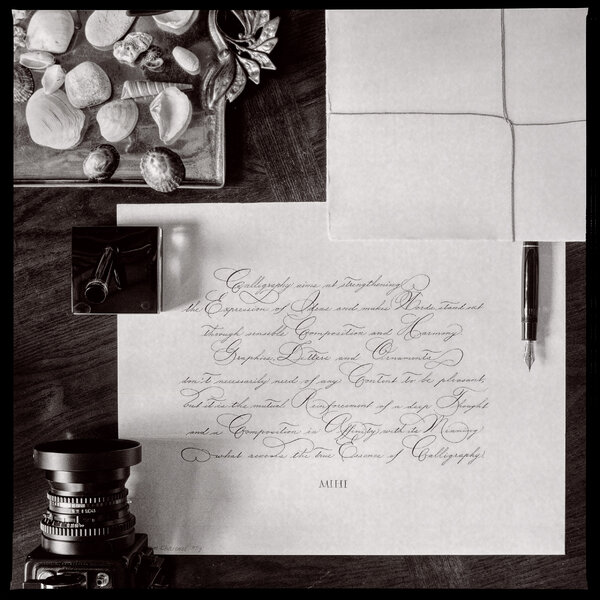 Calligraphy aims at strengthening
the Expression of Ideas and makes Words stand out
through sensible Composition and Harmony
Graphics, Letters and Ornaments
don't necessarily need of any Content to be pleasant,
but it is the mutual Reinforcement of a deep Thought
and a Composition in Affinity with its Meaning
what records the true Essence of Calligraphy